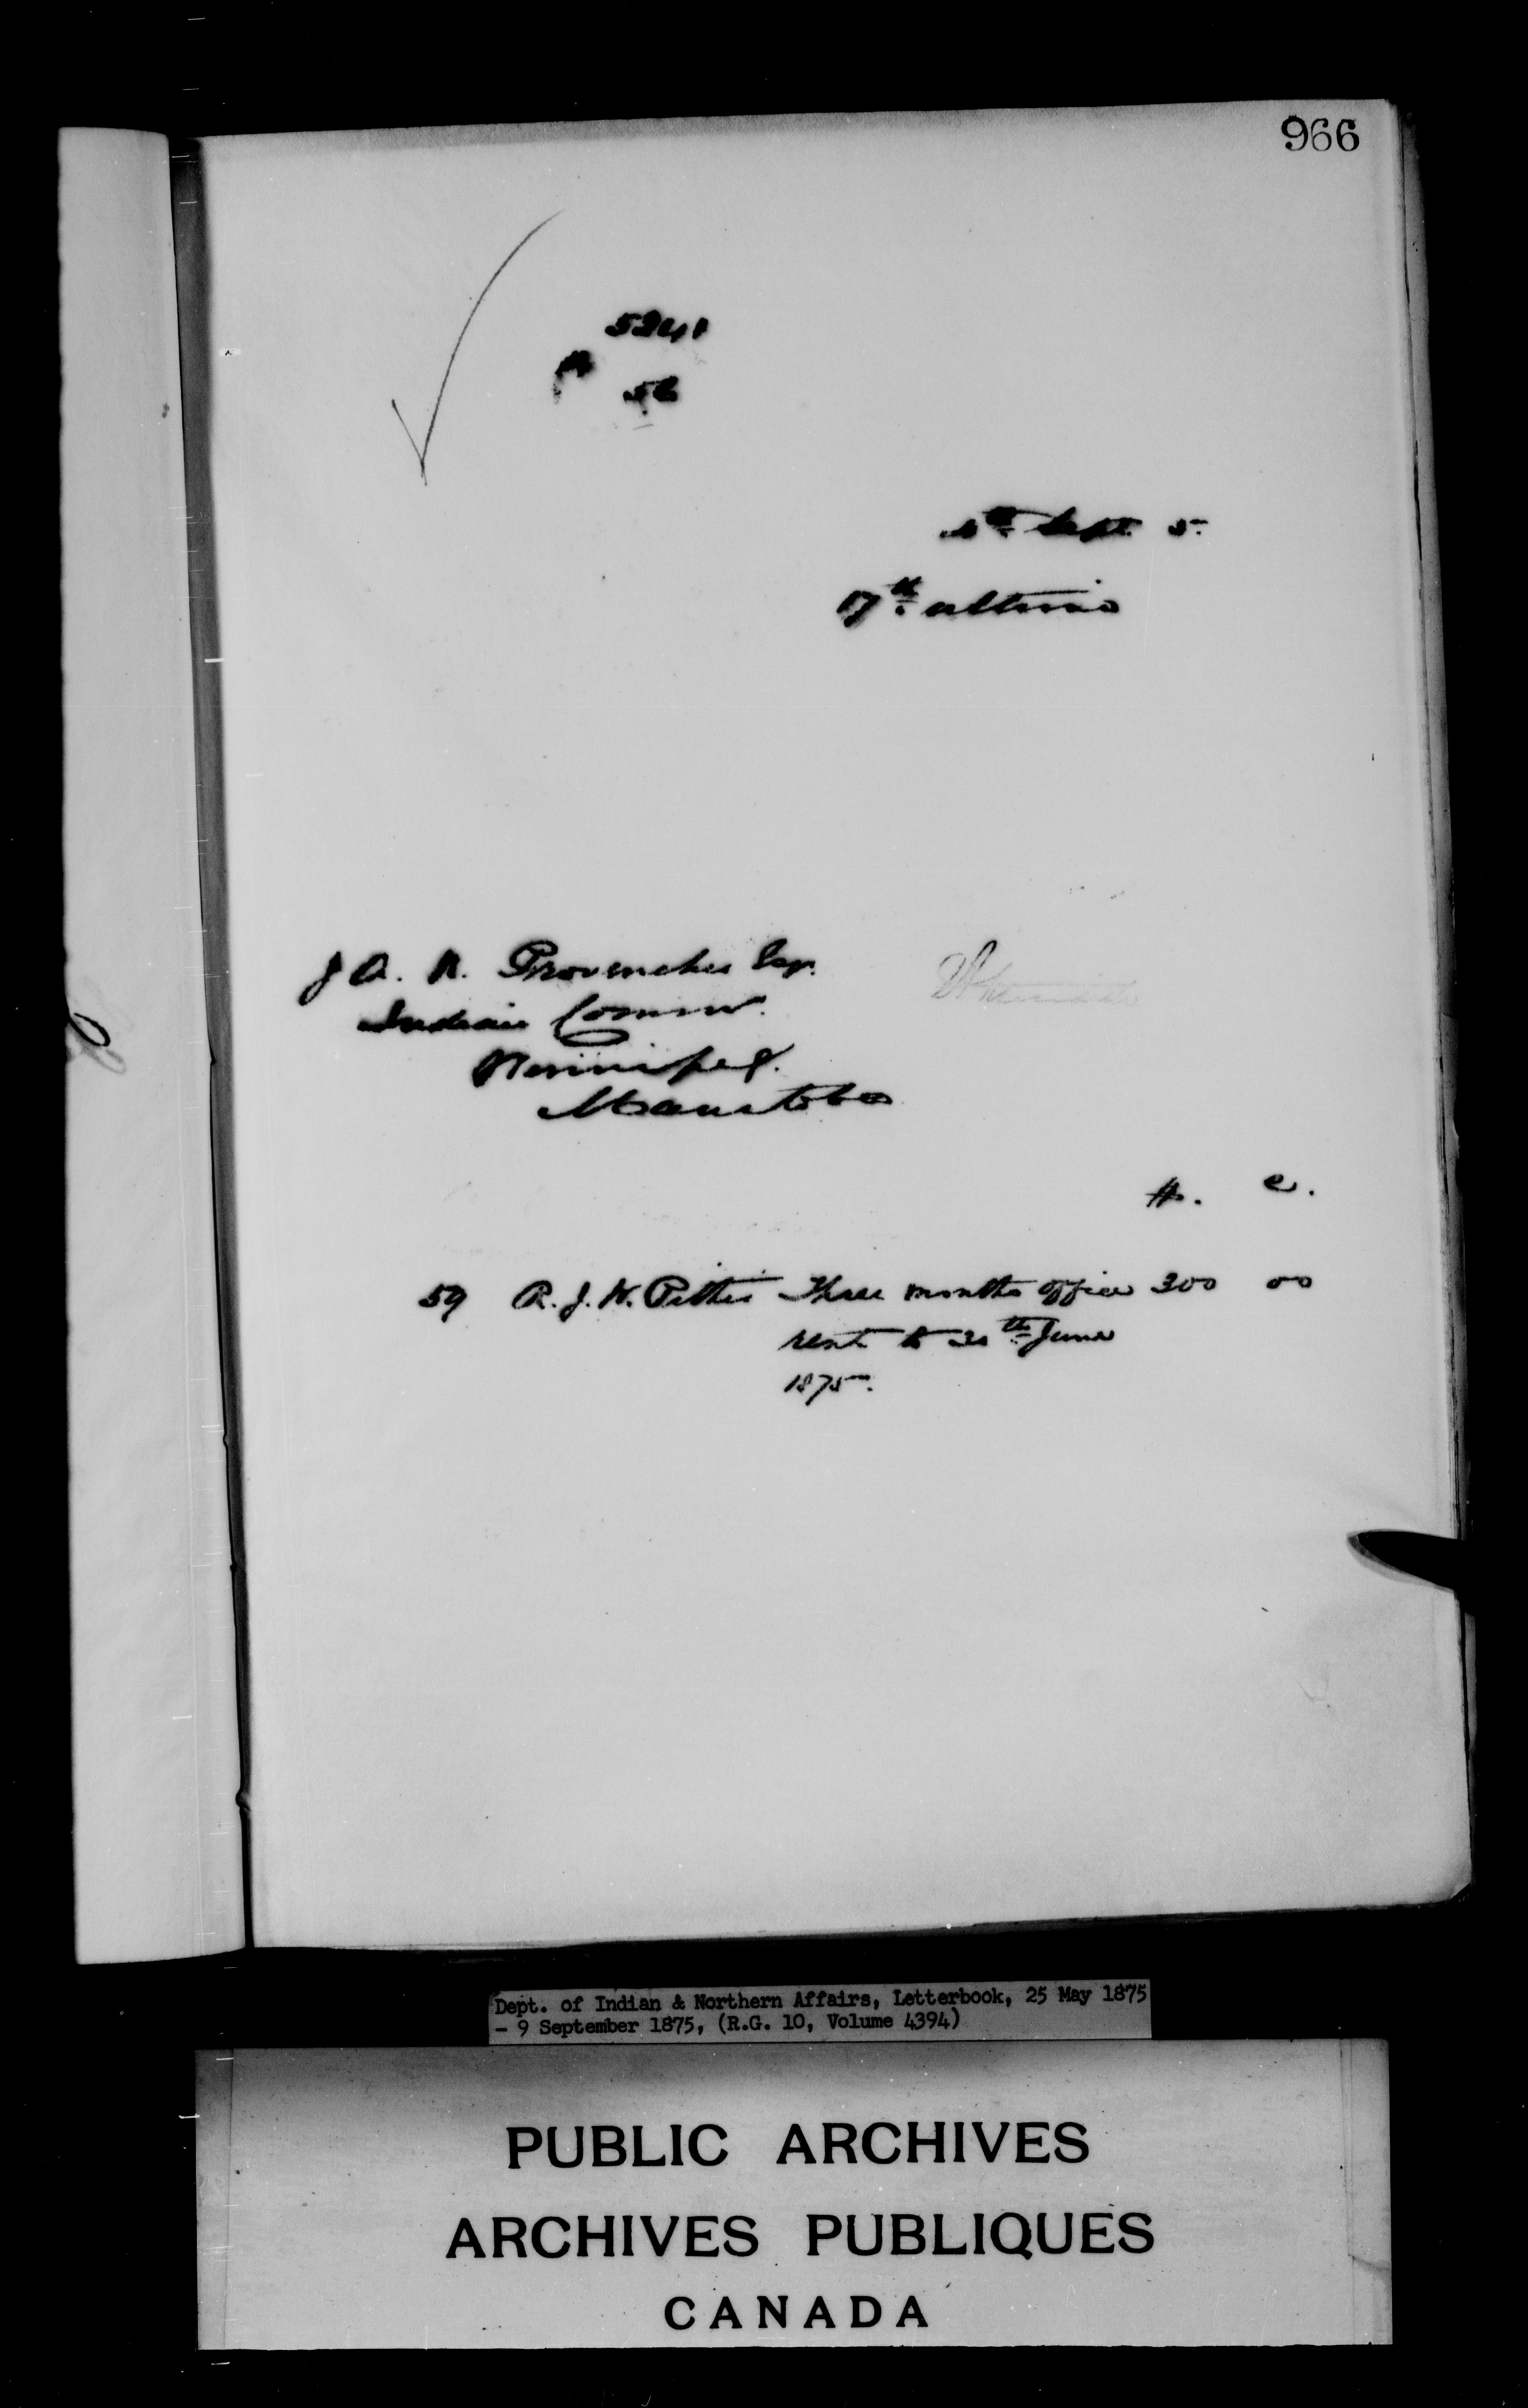 966
5241
56
Sept. 5
17th ultimo
J. A. N. Provencher Esqr.
Indian Commr.
Winnipeg.
Manitoba
$. c.
59 R. J. N. Pither Three months office 300 00
rent to 30th June
1875.
Dept. of Indian & Northern Affairs, Letterbook, 25 May 1875
- 9 September 1875, (R.G. 10, Volume 4394)
PUBLIC ARCHIVES
ARCHIVES PUBLIQUES
CANADA